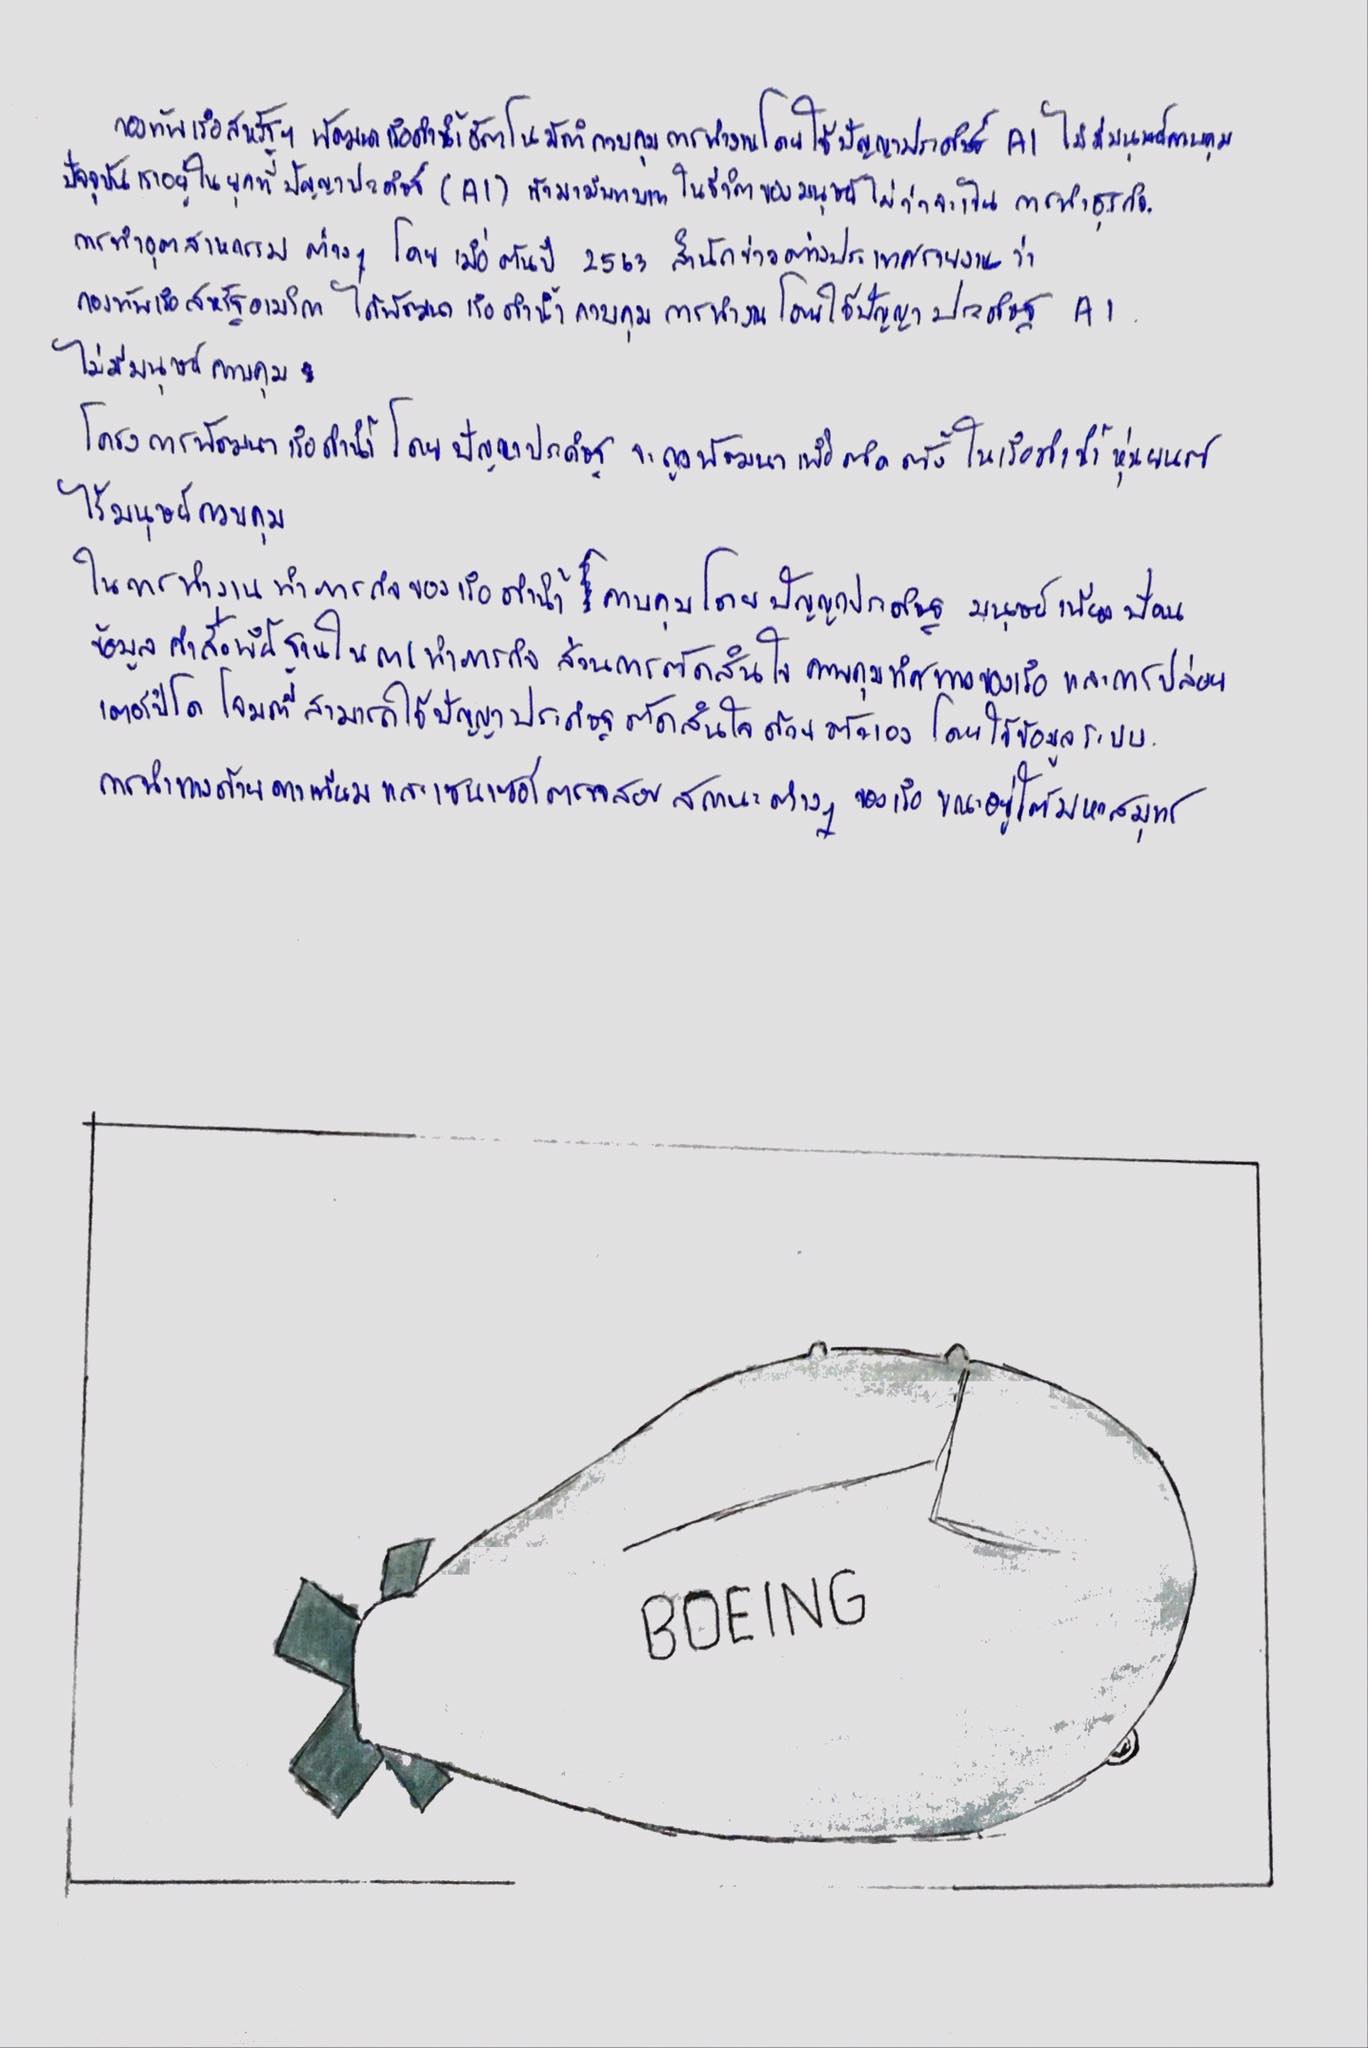 กองทัพเรือสหรัฐฯ พัฒนาเรือดำน้ำอัตโนมัติควบคุมการทำงานโดยใช้ปัญญาประดิษฐ์ AI ไม่มีมนุษย์ควบคุม
ปัจจุบันเราอยู่ในยุคที่ปัญญาประดิษฐ์ (AI) เข้ามามีบทบาทในชีวิตของมนุษย์ไม่ว่าจะเป็น การทำธุรกิจ.
การทำอุตสาหกรรม ต่างๆ โดย เมื่อต้นปี 2563 สำนักข่าวต่างประเทศรายงานว่า
กองทัพเรือสหรัฐอเมริกา ได้พัฒนา เรือดำน้ำ ควบคุม การทำงาน โดยใช้ปัญญา ประดิษฐ AI.
ไม่มีมนุษย์ควบคุม
โครงการพัฒนา เรือดำน้ำ โดย ปัญญาประดิษฐ จะถูกพัฒนา เพื่อติดตั้ง ในเรือดำน้ำ หุ่นยนต์
ไร้มนุษย์ควบคุม
ในการทำงาน ทำภารกิจของเรือดำน้ำ ควบคุมโดย ปัญญาประดิษฐ มนุษย์ เพียงป้อน
ข้อมูล คำสั่งพื้นฐานในการทำภารกิจ ส่วนการตัดสินใจ ควบคุมทิศทางของเรือ และการปล่อย
เตอร์ปิโด โจมตี สามารถใช้ปัญญาประดิษฐ ตัดสินใจ ด้วยตัวเอง โดยใช้ข้อมูลระบบ.
การนำทางด้วยดาวเทียม และเซนเซอร์ตรวจสอบ สถานะต่างๆ ของเรือ ขณะอยู่ใต้มหาสมุทร
BOEING